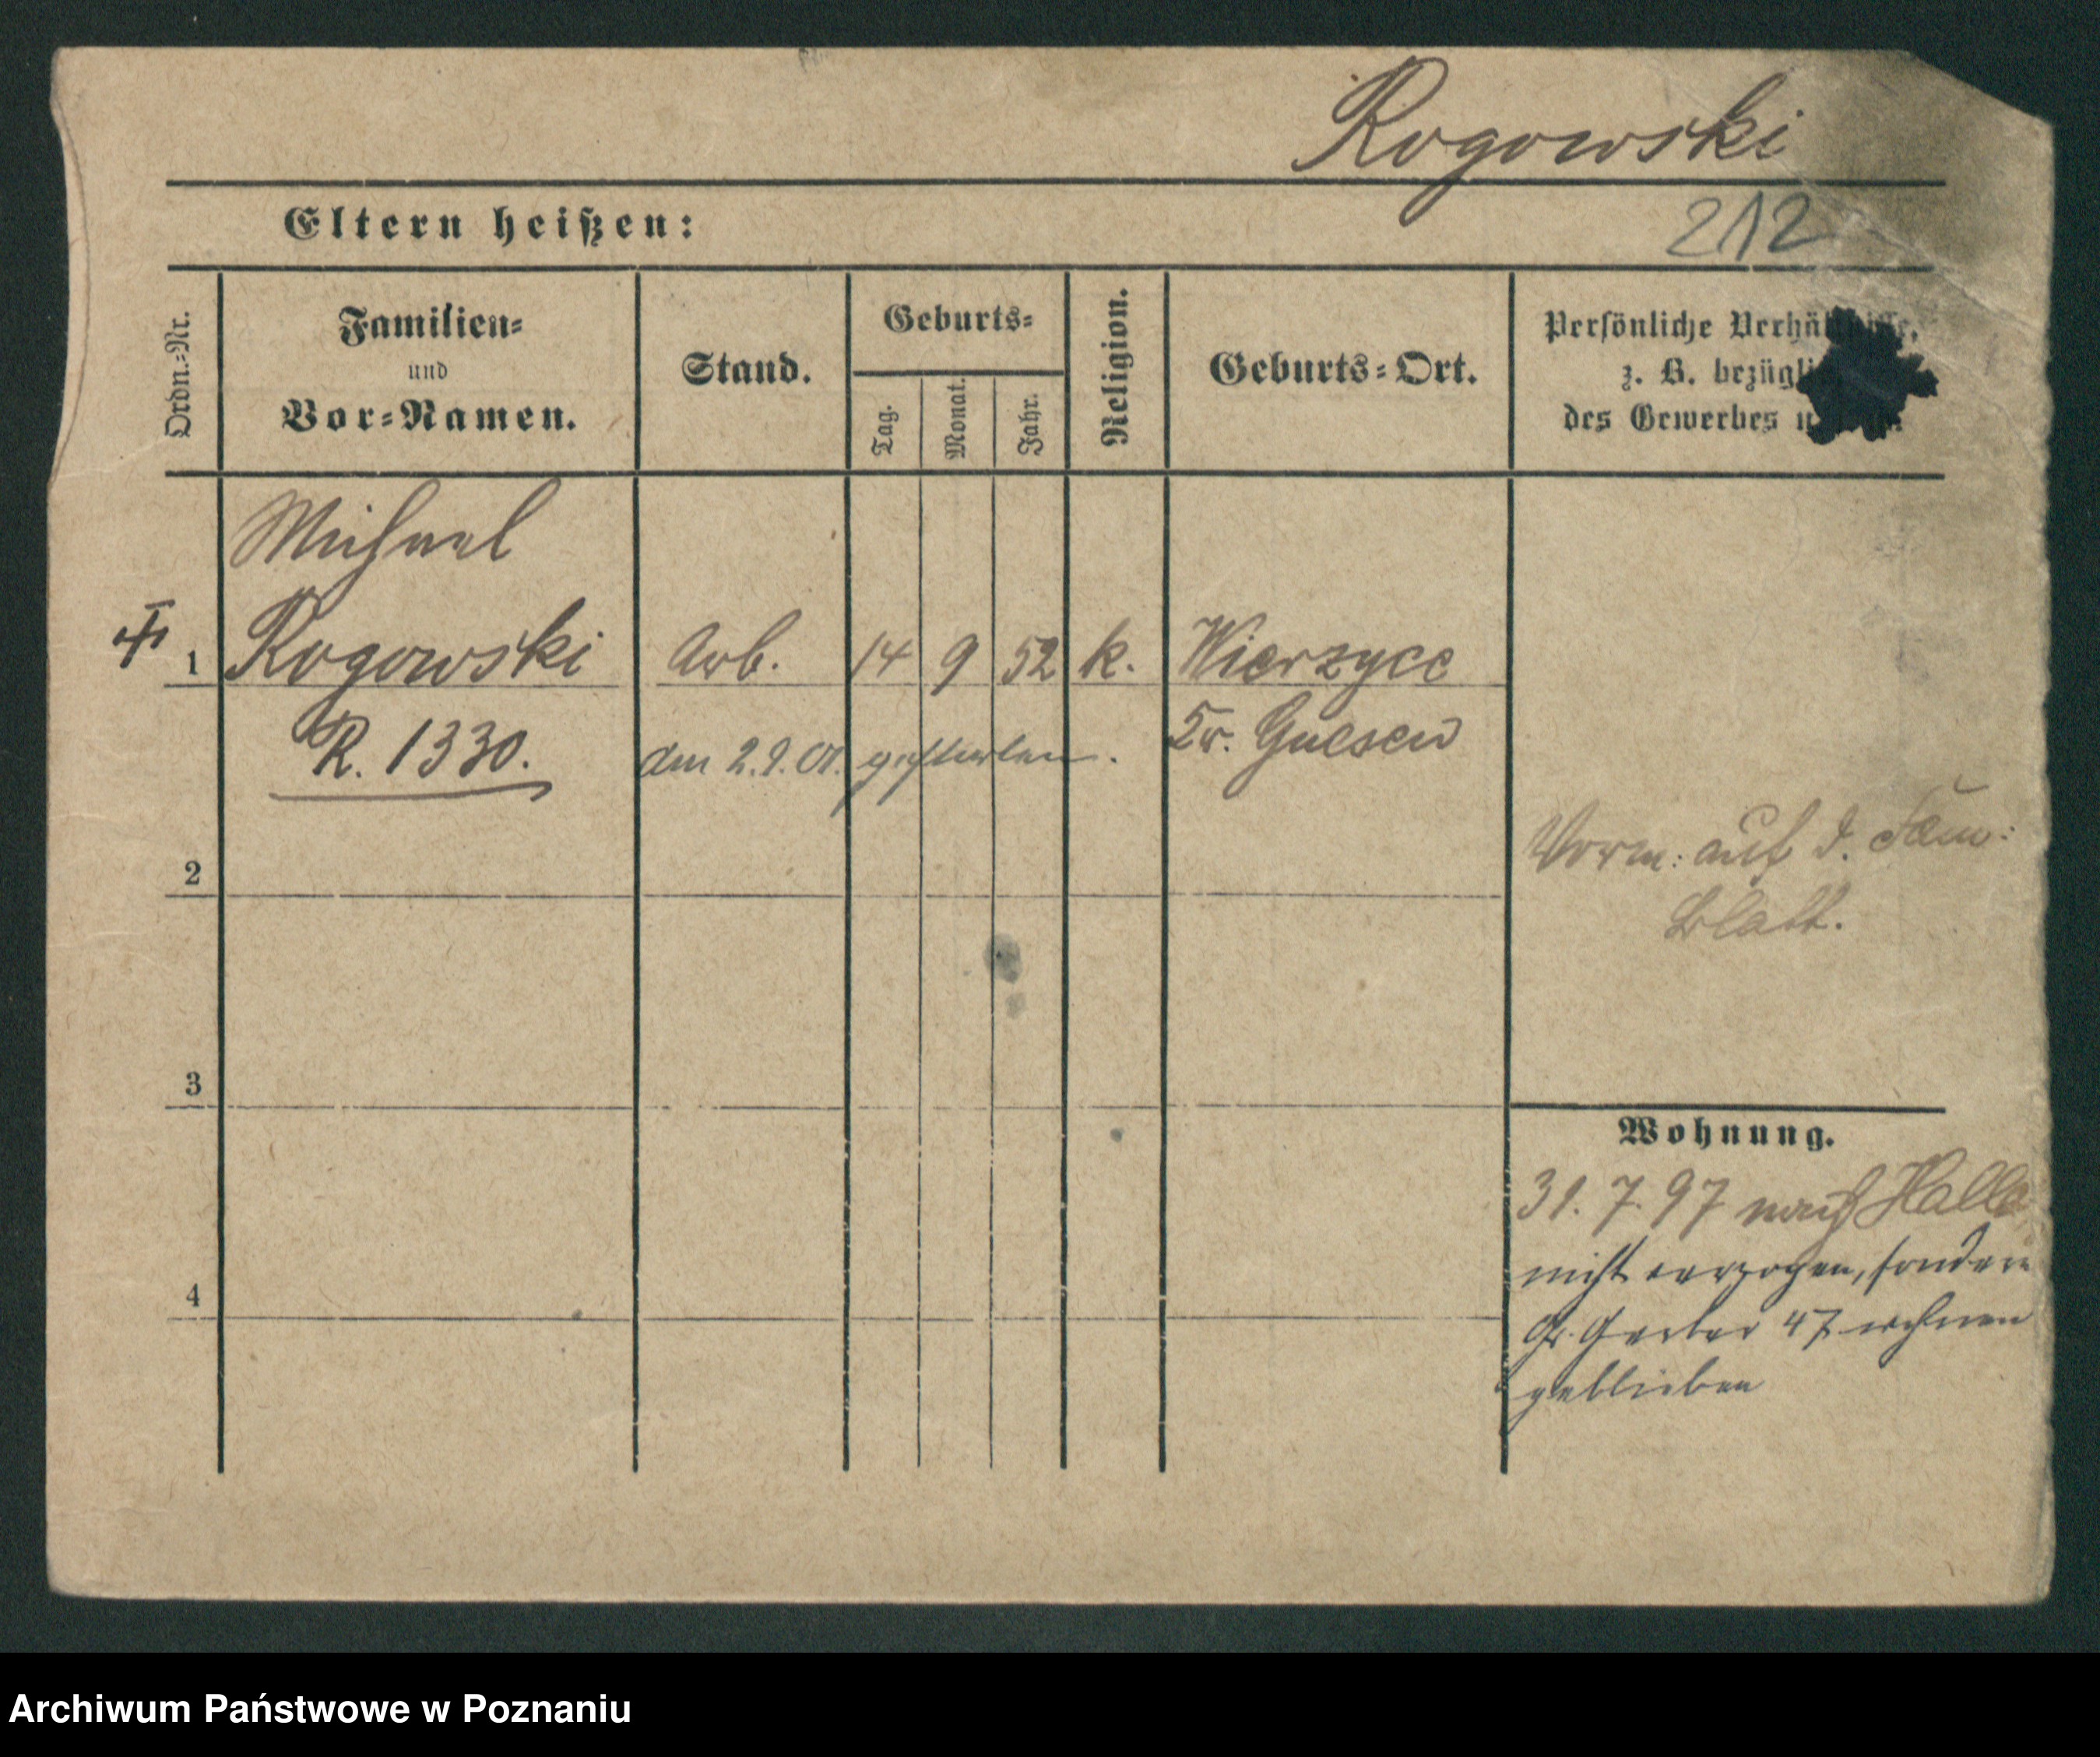 Rogowski
212
Eltern heißen:
Ordn.=Nr.
Familien=
und
Vor=Namen.
Stand.
Geburts=
Tag.
Monat.
Jahr.
Religion.
Geburts=Ort.
Persönliche Verhältnisse,
z. B. bezüglich
des Gewerbes
Michael
1 Rogowski Arb. 14 9 52 k. Wierzyce
R. 1330. am 2.9.01. gestorben. Kr. Gnesen
2
Verm: auf d. Fam:
Blatt.
3
Wohnung.
31. 7. 97 nach Halle
nicht verzogen, sondern
Gr. Gerber 47 wohnen
geblieben
4
Archiwum Państwowe w Poznaniu